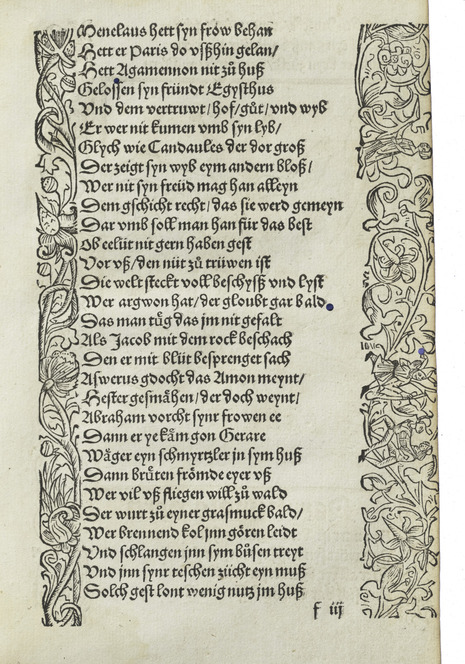 Menelaus hett syn frow behan
Hett er Paris do vßhin gelan/
Hett Agamennon nit zů huß
Gelossen syn fründt Egysthus
Vnd dem vertruwt/hof/gůt/vnd wyb
Er wer nit kumen vmb syn lyb/
Glych wie Candaules der dor groß
Der zeigt syn wyb eym andern bloß/
Wer nit syn freüd mag han alleyn
Dem gschicht recht/das sie werd gemeyn
Dar vmb soll man han für das best
Ob eelüt nit gern haben gest
Vor vß/den nüt zů trüwen ist
Die welt steckt voll beschysß vnd lyst
Wer argwon hat/der gloubt gar bald
Das man tüg das jm nit gefalt
Als Jacob mit dem rock beschach
Den er mit blüt besprenget sach
Aswerus gdocht das Amon meynt/
Hester gesmähen/der doch weynt/
Abraham vorcht synr frowen ee
Dann er ye käm gon Gerare
Wäger eyn schmyrtzler jn sym huß
Dann brůten frömde eyer vß
Wer vil vß fliegen will zů wald
Der wurt zů eyner grasmuck bald/
Wer brennend kol jnn gören leidt
Vnd schlangen jnn sym bůsen treyt
Vnd jnn synr teschen zücht eyn muß
Solch gest lont wenig nutz jm huß
f iij